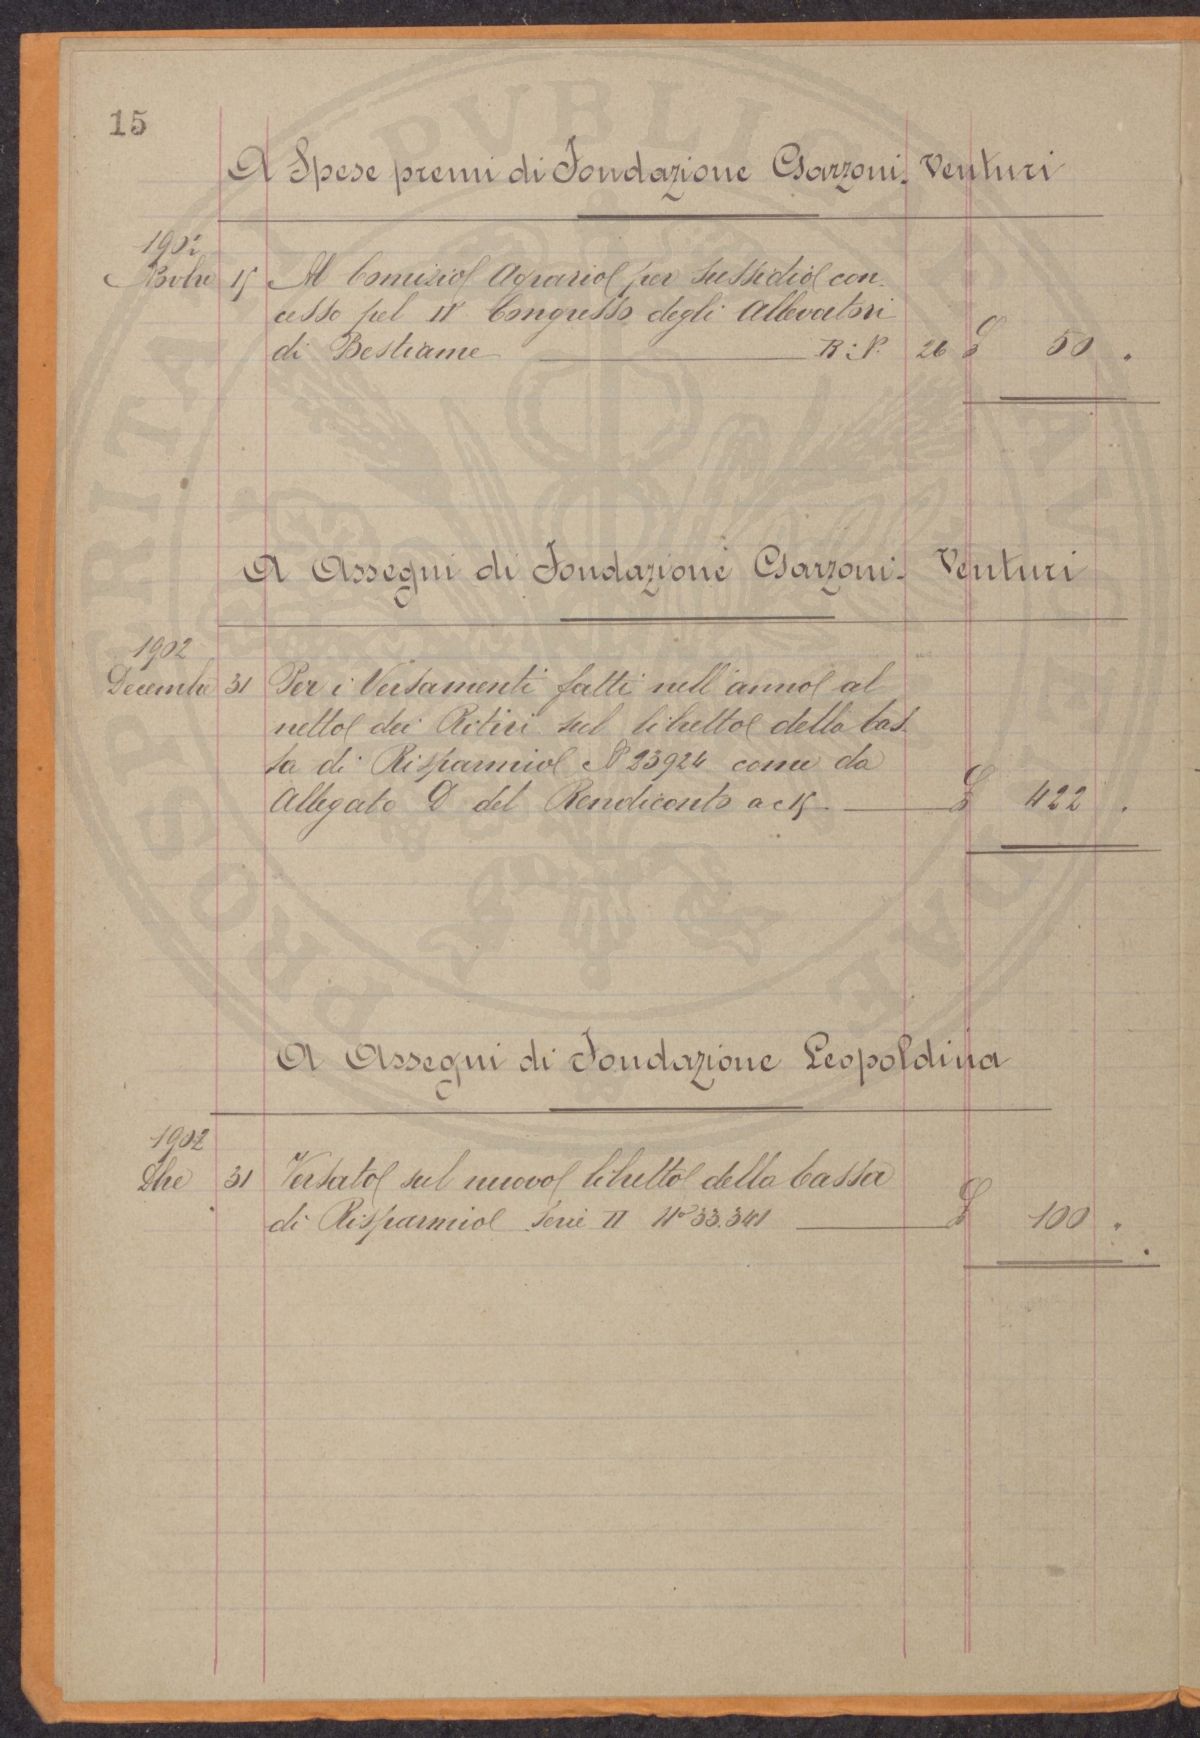 15
A Spese premi di Fondazione Garzoni-Venturi
1902
Nbre 15 Al Comizio Agrario per sussidio con-
cesso pel II° Congresso degli Allevatori
di Bestiame R: N. 26 £ 50 .
A Assegni di Fondazione Garzoni-Venturi
1902
Decembre 31 Per i Versamenti fatti nell'anno al
netto dei Ritiri sul libretto della Cas-
sa di Risparmio N° 23924 come da
Allegato D del Rendiconto a c 15 £ 422 .
A Assegni di Fondazione Leopoldina
1902
Dbe 31 Versato sul nuovo libretto della Cassa
di Risparmio Serie II N° 33.341 £ 100 .
PROSPERITATI PVBLICAE AVGENDAE